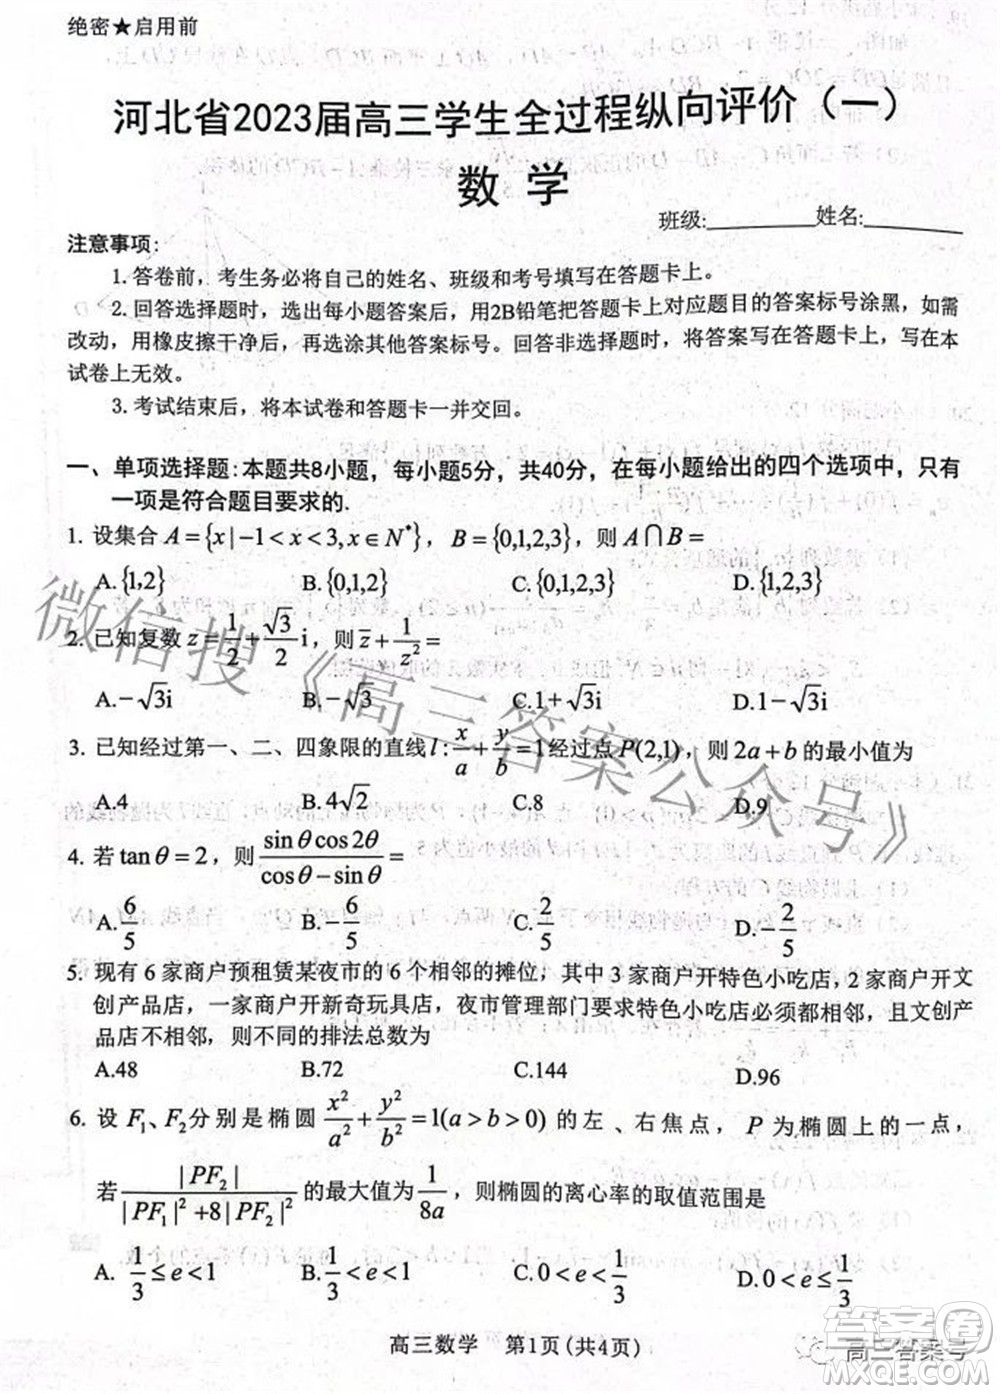 绝密★启用前
河北省2023届高三学生全过程纵向评价（一）
数 学
班级:________姓名:________
注意事项:
1. 答卷前，考生务必将自己的姓名、班级和考号填写在答题卡上。
2. 回答选择题时，选出每小题答案后，用2B铅笔把答题卡上对应题目的答案标号涂黑，如需
改动，用橡皮擦干净后，再选涂其他答案标号。回答非选择题时，将答案写在答题卡上，写在
本试卷上无效。
3. 考试结束后，将本试卷和答题卡一并交回。
一、单项选择题:本题共8小题，每小题5分，共40分，在每小题给出的四个选项中，只有
一项是符合题目要求的.
1. 设集合 A={x|-1<x<3,x∈N*}，B={0,1,2,3}，则 A∩B=
A.{1,2} B.{0,1,2} C.{0,1,2,3} D.{1,2,3}
2. 已知复数 z=1/2+√3/2 i，则 z̄+1/z²=
A.-√3i B.-√3 C.1+√3i D.1-√3i
3. 已知经过第一、二、四象限的直线 l:x/a+y/b=1经过点P(2,1)，则 2a+b 的最小值为
A.4 B.4√2 C.8 D.9
4. 若 tanθ=2，则 sinθcos2θ/(cosθ-sinθ)=
A.6/5 B.-6/5 C.2/5 D.-2/5
5. 现有 6 家商户预租赁某夜市的 6 个相邻的摊位，其中 3 家商户开特色小吃店，2 家商户开文
创产品店，一家商户开新奇玩具店，夜市管理部门要求特色小吃店必须都相邻，且文创产品
店不相邻，则不同的排法总数为
A.48 B.72 C.144 D.96
6. 设 F₁、F₂分别是椭圆 x²/a²+y²/b²=1(a>b>0) 的左、右焦点，P 为椭圆上的一点，
若 |PF₂|/(|PF₁|²+8|PF₂|²) 的最大值为 1/8a，则椭圆的离心率的取值范围是
A. 1/3≤e<1 B. 1/3<e<1 C.0<e<1/3 D.0<e≤1/3
高三数学 第1页(共4页)
微信搜《高三答案公众号》
高三答案号
答案圈